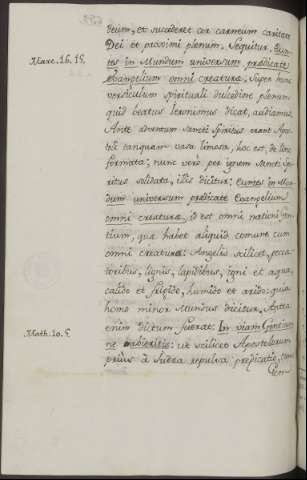 deum, et succederet cor carneum caritate
Dei et proximi plenum. Sequitur. Eun-
Marc. 16. 15.
tes in Mundum universum prædicate
evangelium omni creaturæ. Super hunc
versiculum spirituali dulcedine plenum
quid beatus Ieronimus dicat, audiamus.
Ante adventum Sancti Spiritus erant Apos-
toli tanquam vasa limosa, hoc est, de limo
formata; nunc vero per ignem Sancti Spi-
ritus solidata, illis dicitur; Euntes in Mun-
dum universum prædicate Evangelium
omni creaturæ, id est omni nationi gen-
tium, quæ habet aliquid comune cum
omni creatura: Angelis scilicet, pecca-
toribus, lignis, lapidibus, igni et aqua,
calido et frigido, humido et arido: quia
homo minor Mundus dicitur. Antea
Math. 10. 5.
enim dictum fuerat: In viam Gentium
ne abieritis: ut scilicet Apostolorum
prius à Iudea repulsa predicatio,